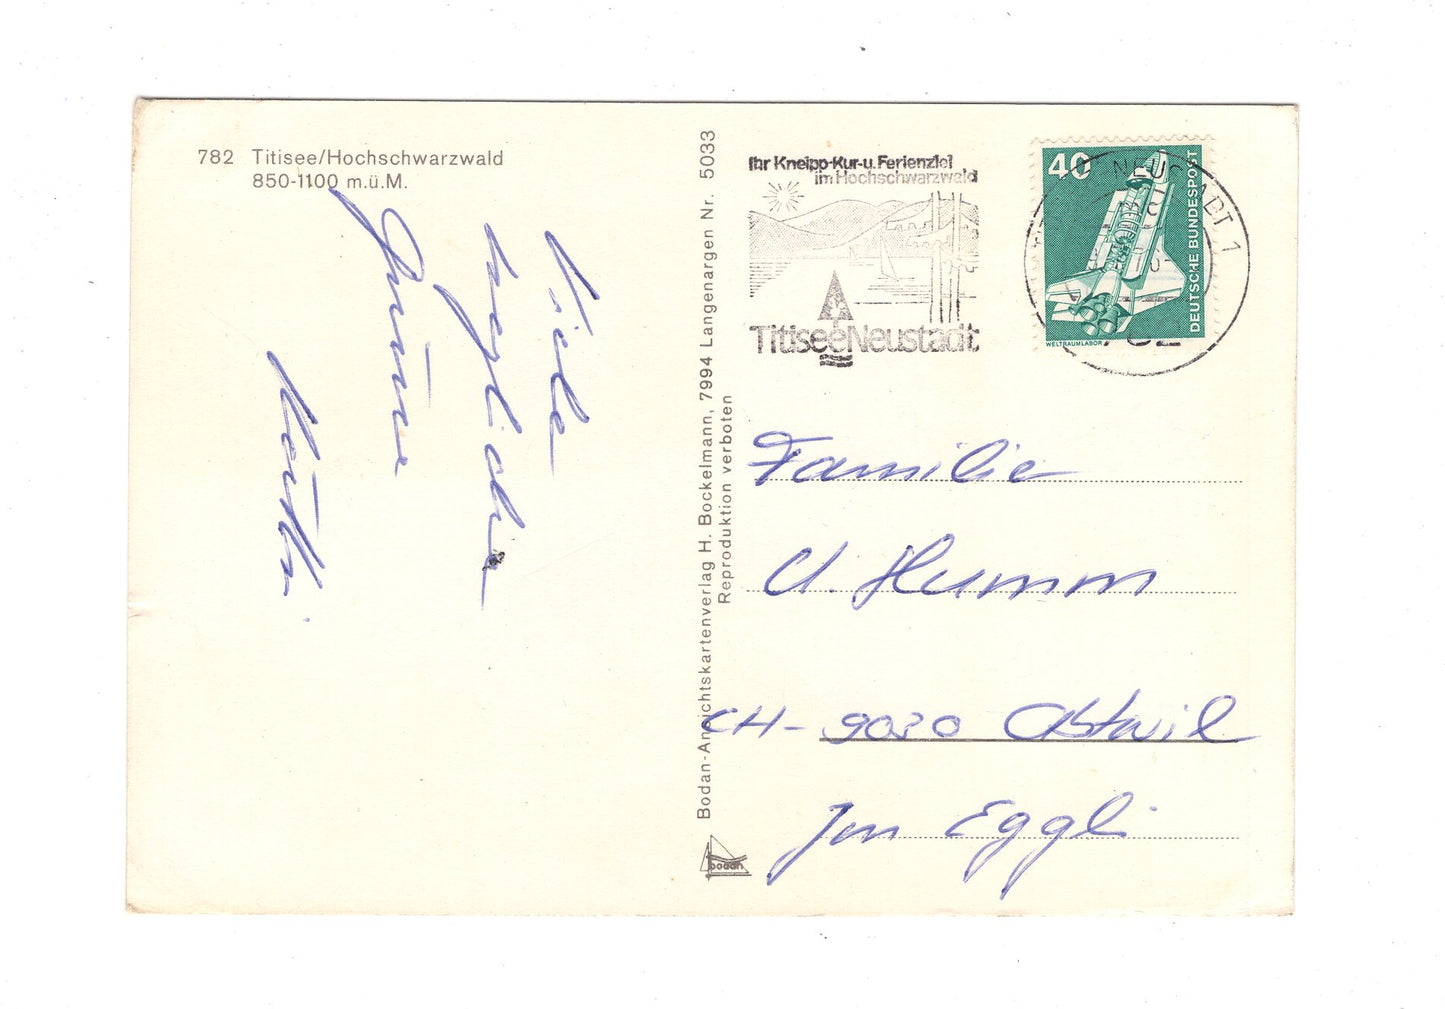 782 Titisee/Hochschwarzwald
850-1100 m.ü.M.
Viele
herzliche
Grüsse
Käthi
Bodan-Ansichtskartenverlag H. Bockelmann, 7994 Langenargen Nr. 5033
Reproduktion verboten
bodan
Ihr Kneipp-Kur-u. Ferienziel
im Hochschwarzwald
TitiseeNeustadt
40
DEUTSCHE BUNDESPOST
WELTRAUMLABOR
NEUSTADT 1
782
Familie
U. Humm
CH-9030 Abtwil
Im Eggli